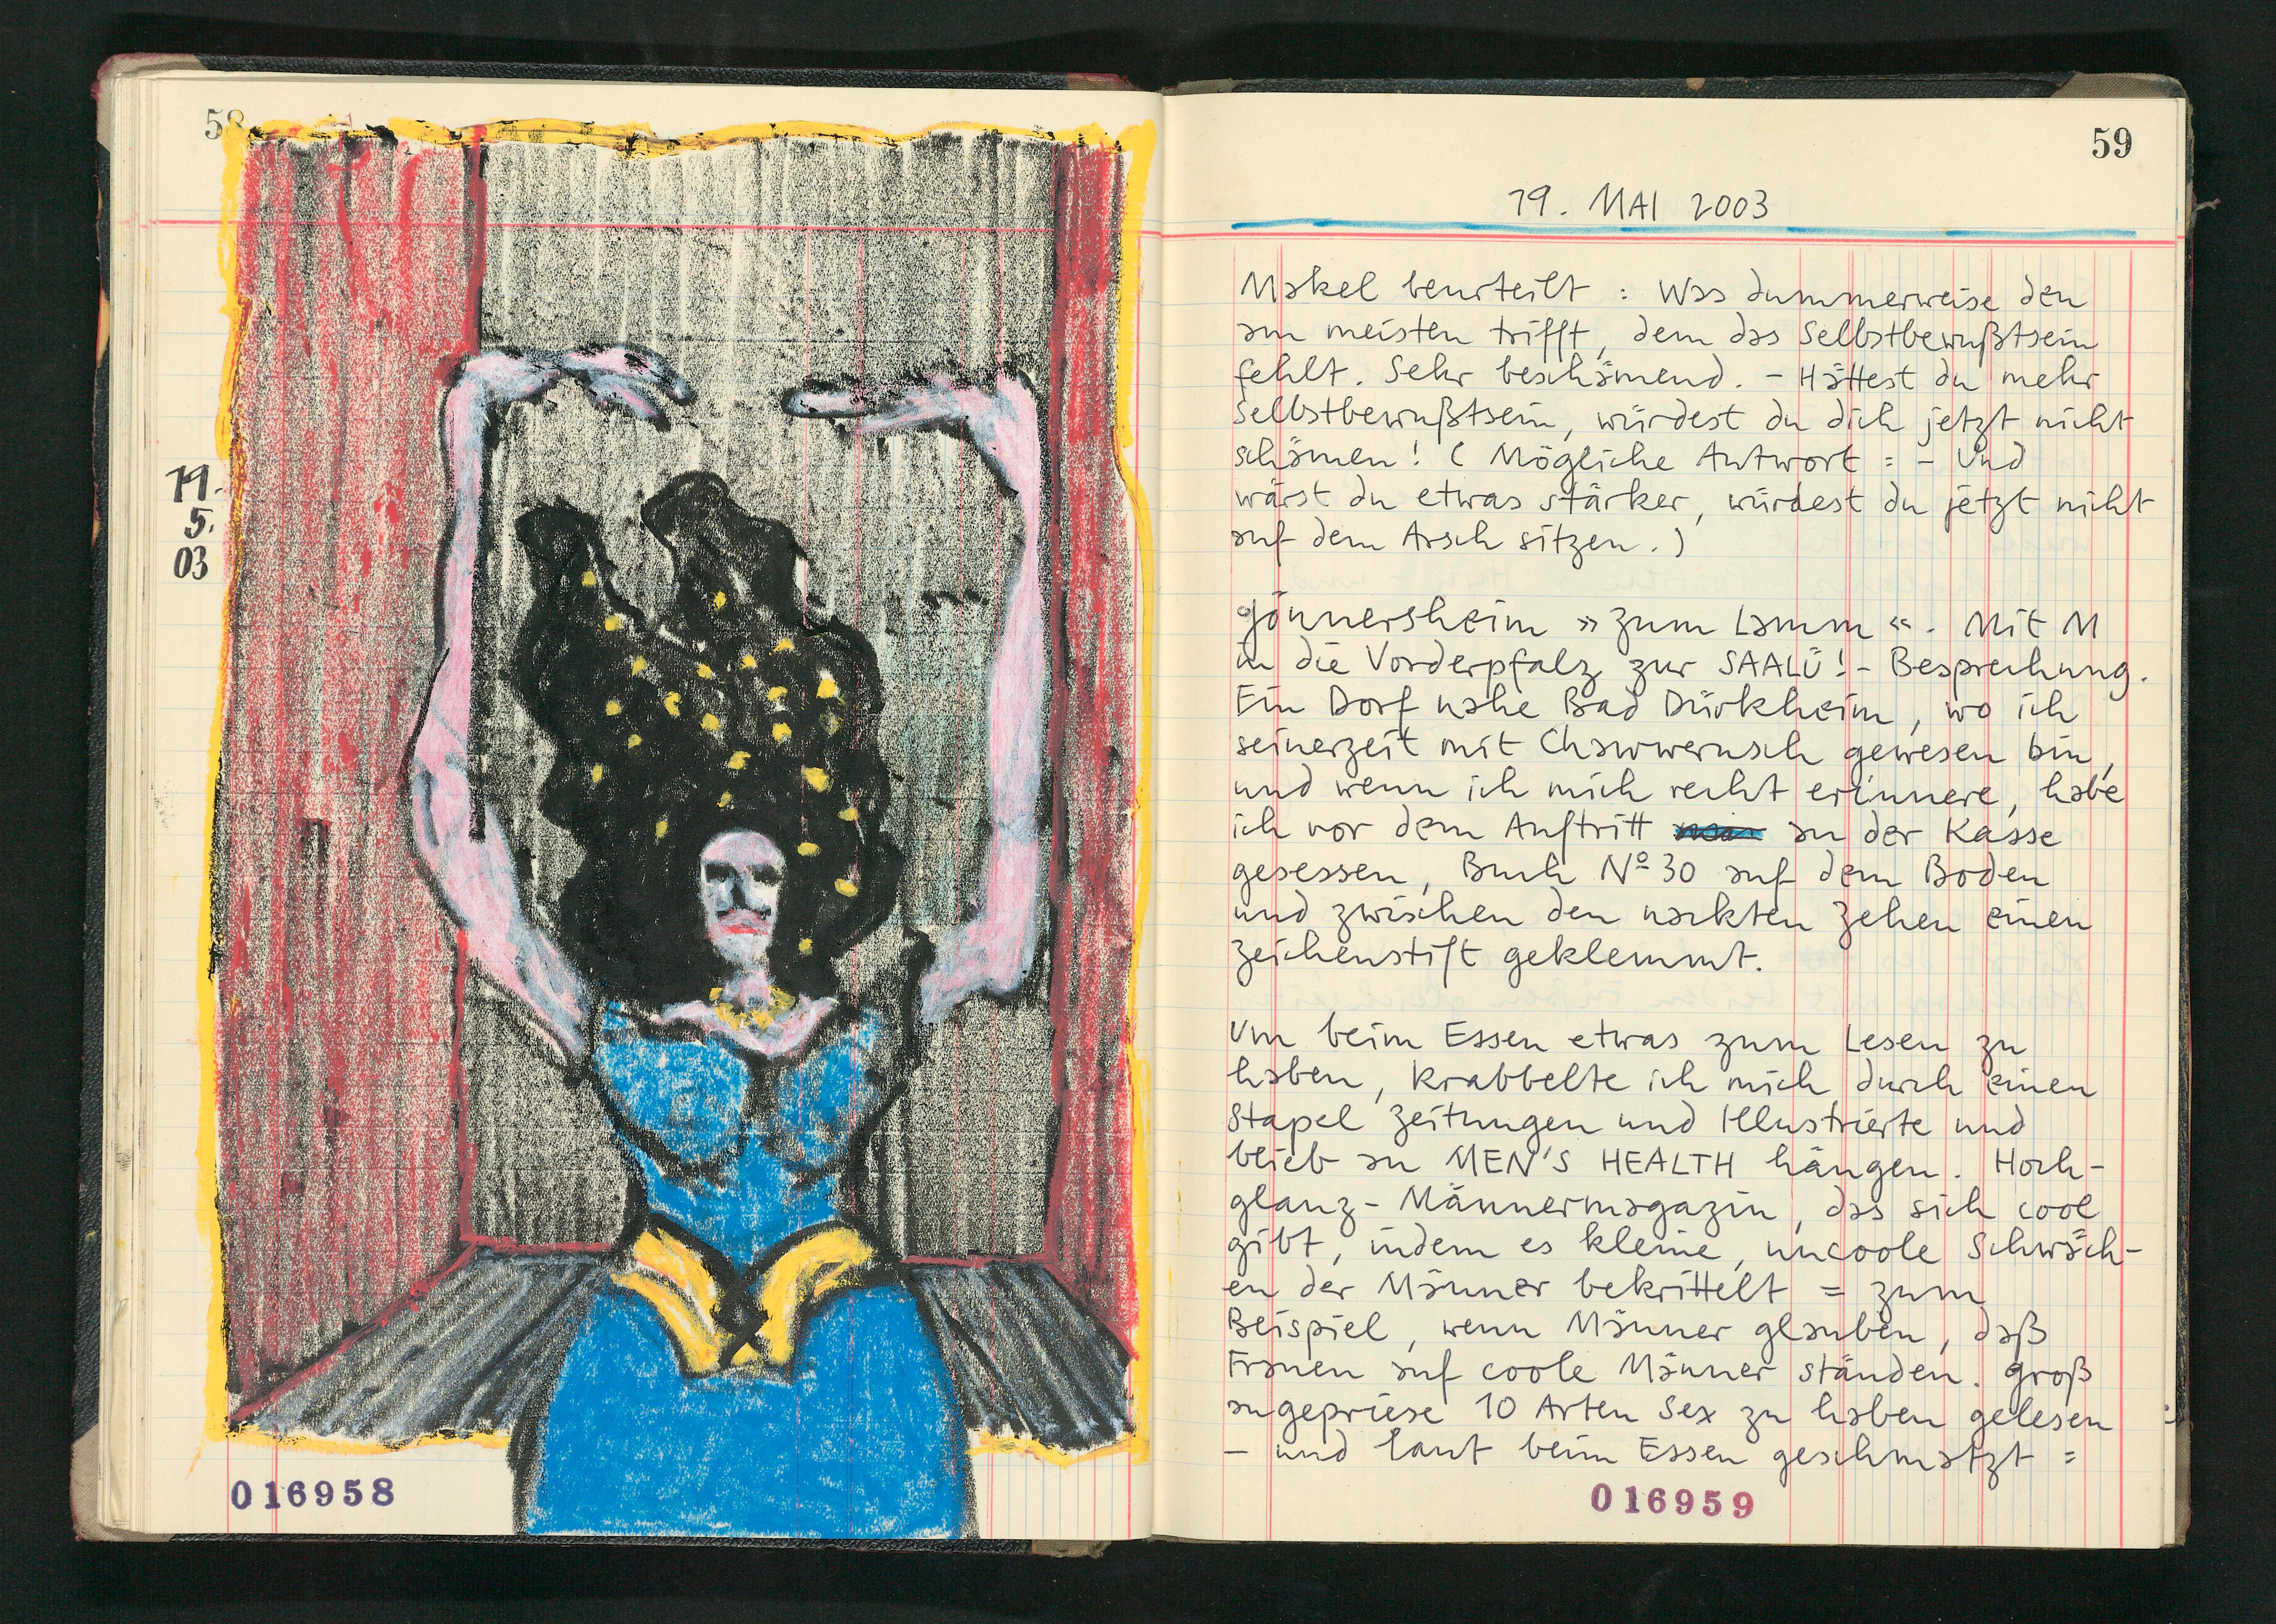 58
19.
5.
03
016958
59
19. MAI 2003
Makel beurteilt : Was dummerweise den
am meisten trifft, dem das Selbstbewußtsein
fehlt. Sehr beschämend. - Hättest du mehr
Selbstbewußtsein, würdest du dich jetzt nicht
schämen! ( Mögliche Antwort : - Und
wärst du etwas stärker, würdest du jetzt nicht
auf dem Arsch sitzen. )
Gönnersheim »Zum Lamm«. Mit M
in die Vorderpfalz zur SAALÜ! - Besprechung.
Ein Dorf nahe Bad Dürkheim, wo ich
seinerzeit mit Chawwerusch gewesen bin,
und wenn ich mich recht erinnere, habe
ich vor dem Auftritt an der Kasse
gesessen, Buch Nº 30 auf dem Boden
und zwischen den nackten Zehen einen
Zeichenstift geklemmt.
Um beim Essen etwas zum Lesen zu
haben, krabbelte ich mich durch einen
Stapel Zeitungen und Illustrierte und
blieb an MEN'S HEALTH hängen. Hoch-
glanz-Männermagazin, das sich cool
gibt, indem es kleine, uncoole Schwäch-
en der Männer bekrittelt = zum
Beispiel, wenn Männer glauben, daß
Frauen auf coole Männer ständen. Groß
angepriese 10 Arten Sex zu haben gelesen
- und laut beim Essen geschmatzt =
016959